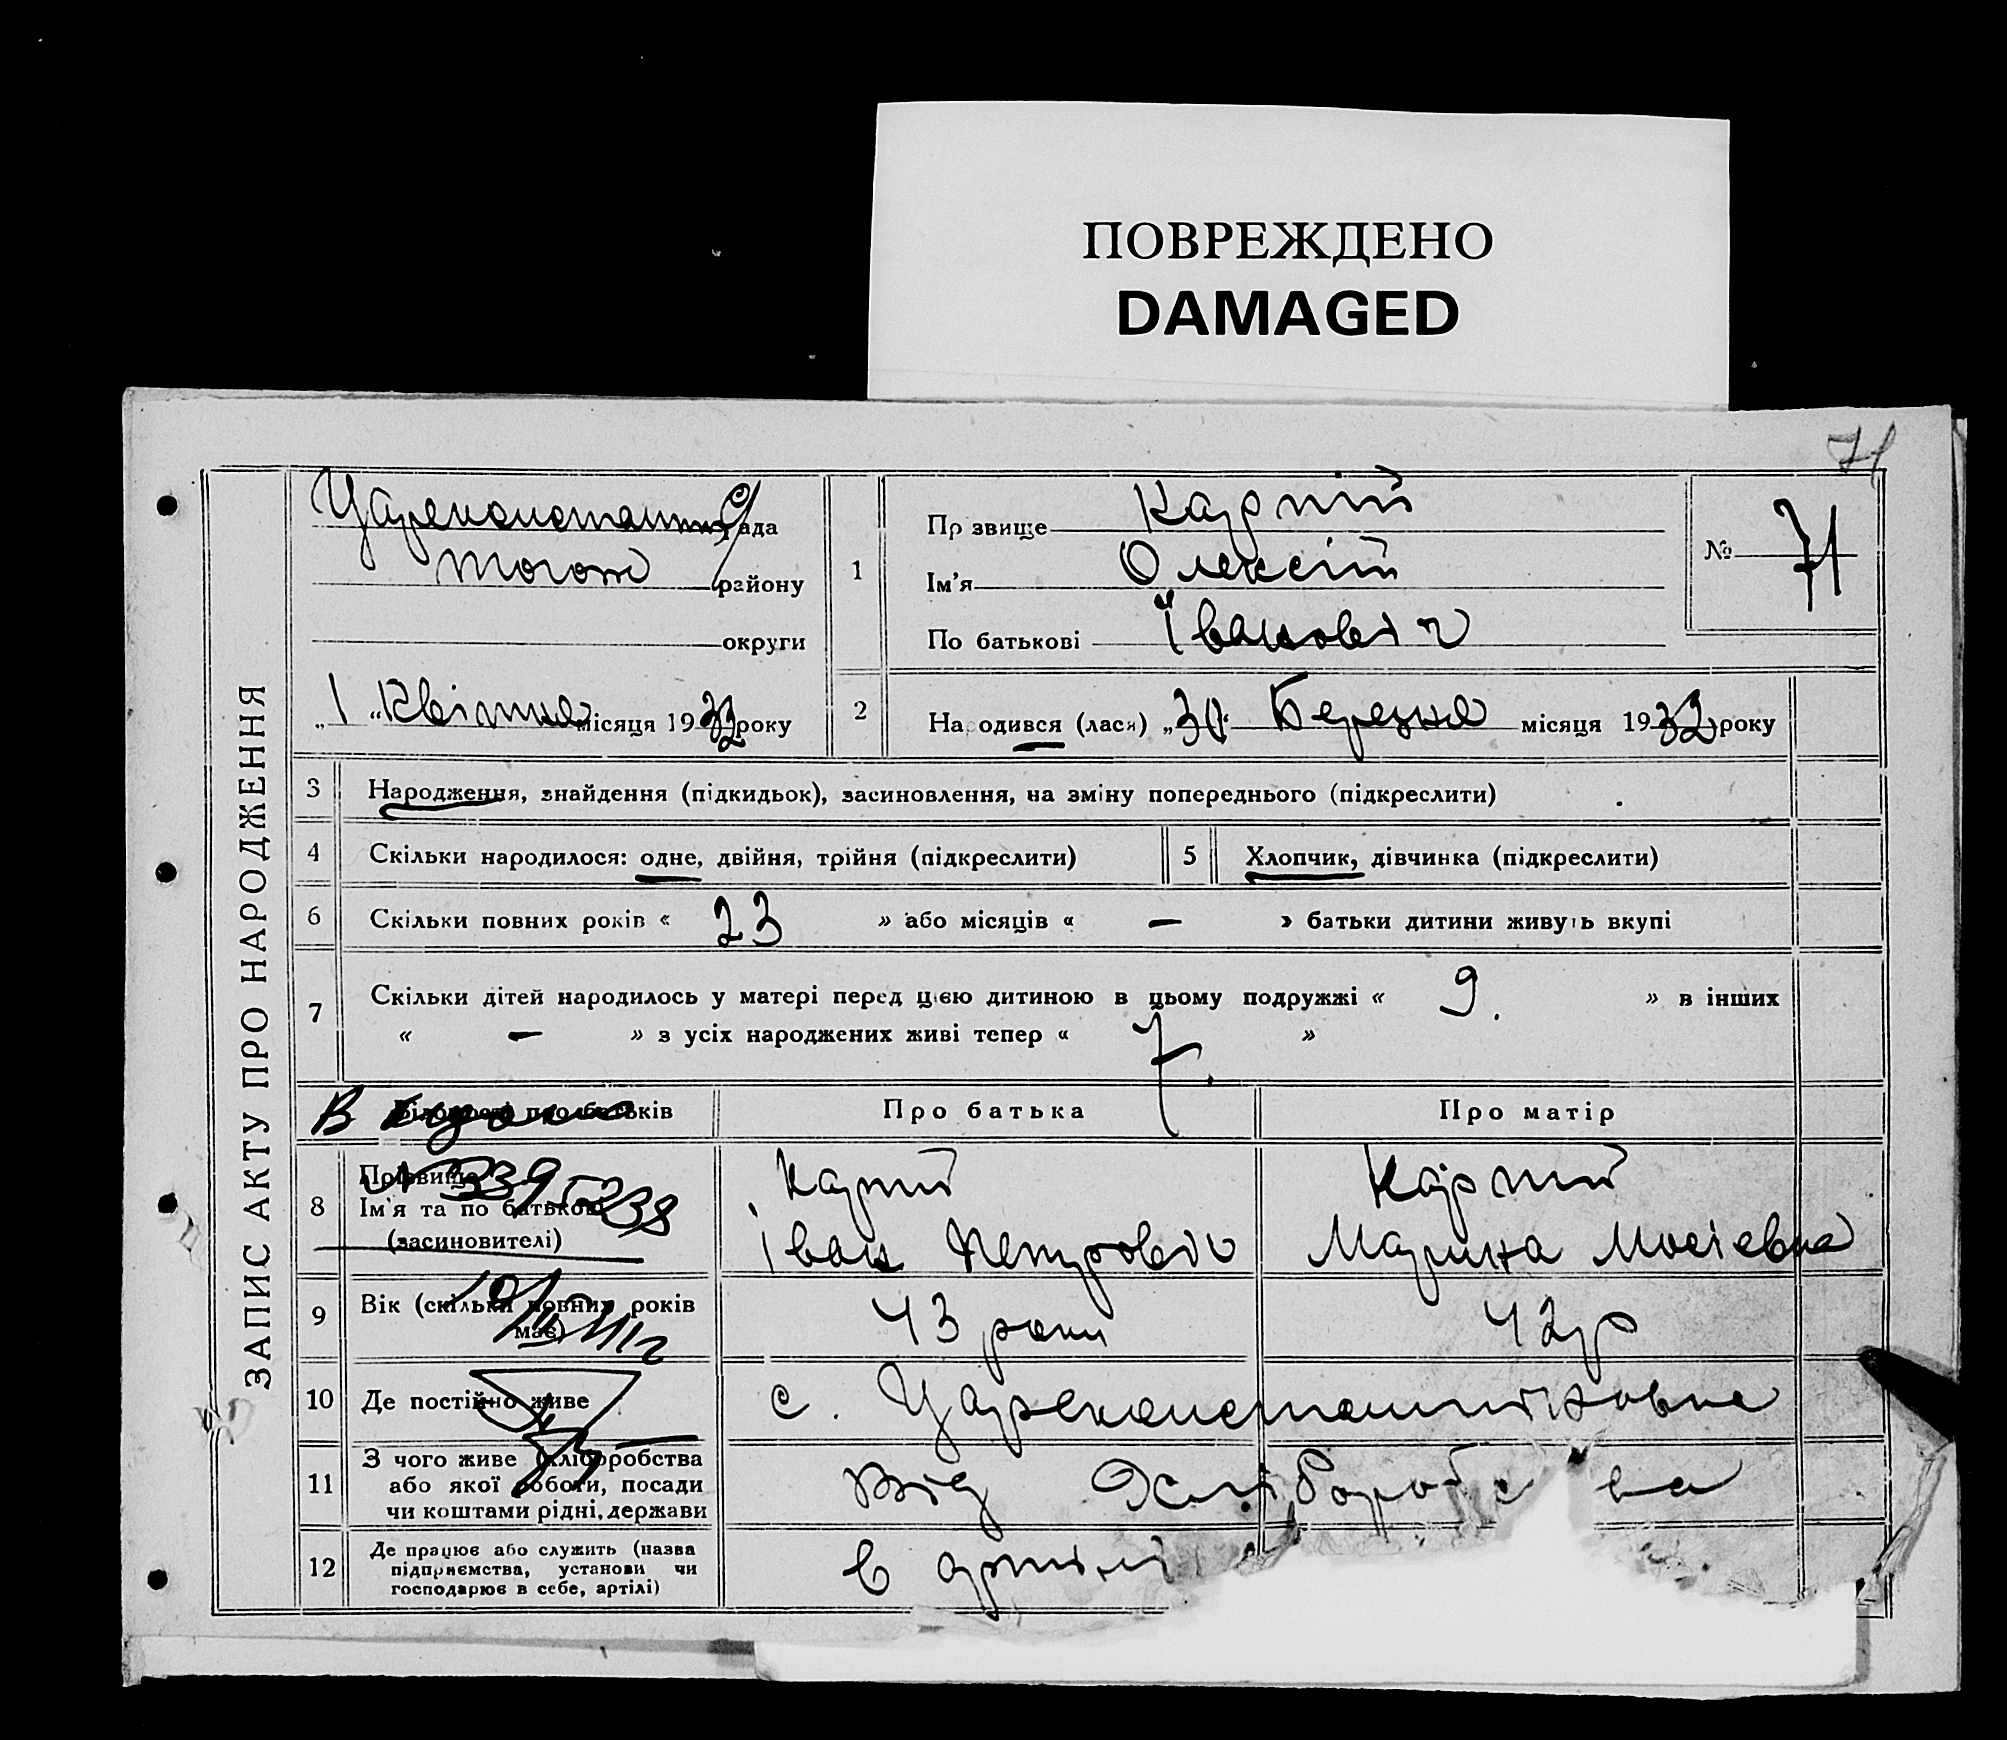 ПОВРЕЖДЕНО
DAMAGED
71
ЗАПИС АКТУ ПРО НАРОДЖЕННЯ
рада
району
округи
„1“ Квітня місяця 1932 року
1
Прізвище Карпій
Ім'я Олексій
По батькові Іванович
№ 71
2
Народився (лася) „30“ Березня місяця 1932 року
3 Народження, знайдення (підкидьок), засиновлення, на зміну попереднього (підкреслити)
4 Скільки народилося: одне, двійня, трійня (підкреслити)
5 Хлопчик, дівчинка (підкреслити)
6 Скільки повних років « 23 » або місяців « — » батьки дитини живуть вкупі
7 Скільки дітей народилось у матері перед цією дитиною в цьому подружжі « 9. » в інших
« — » з усіх народжених живі тепер « 7. »
Відомості про батьків
Про батька
Про матір
8 Прізвище
Ім'я та по батькові
(засиновителі)
Карпій
Іван Петрович
Карпій
Марина Мосієвна
9 Вік (скільки повних років
має)
43 роки
42 р
10 Де постійно живе
с. Цареконстантиновна
11 З чого живе (хліборобства
або якої роботи, посади
чи коштами рідні, держави
Від Хліборобства
12 Де працює або служить (назва
підприємства, установи чи
господарює в себе, артілі)
в артілі